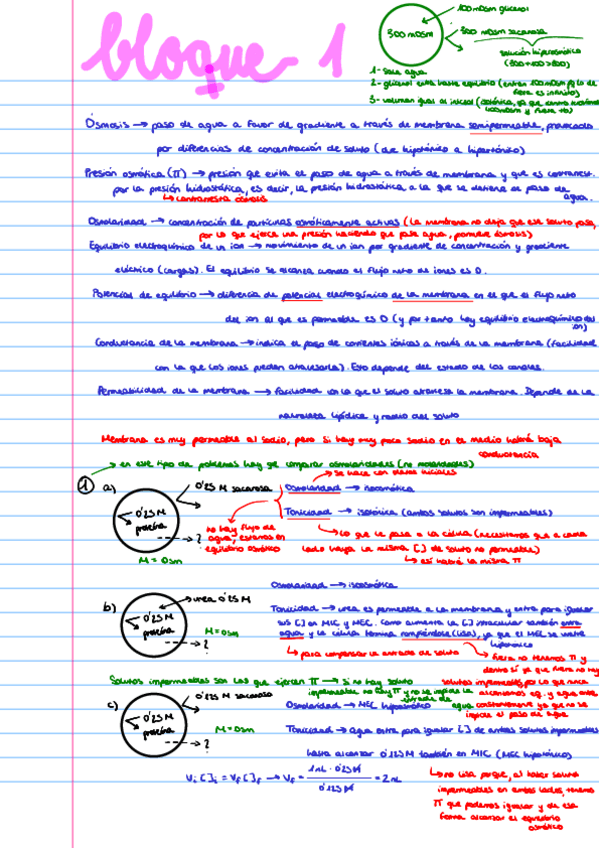 bloque 1
100 mOsm glicerol
300 mOsm
300 mOsm sacarosa
solución hiperosmótica
(300+100>300)
1- sale agua
2- glicerol entra hasta equilibrio (entran 100 mOsm pq lo de
fuera es infinito)
3- volumen igual al inicial (isotónica, ya que
Ósmosis → paso de agua a favor de gradiente a través de membrana semipermeable, provocado
por diferencias de concentración de soluto (de hipotónico a hipertónico)
Presión osmótica (π) → presión que evita el paso de agua a través de membrana y que es contrarrest.
por la presión hidrostática, es decir, la presión hidrostática a la que se detiene el paso de
agua.
↳ contrarresta ósmosis
Osmolaridad → concentración de partículas osmóticamente activas (la membrana no deja que ese soluto pase,
por lo que ejerce una presión haciendo que pase agua, promueve ósmosis)
Equilibrio electroquímico de un ion → movimiento de un ion por gradiente de concentración y gradiente
eléctrico (cargas). El equilibrio se alcanza cuando el flujo neto de iones es 0.
Potencial de equilibrio → diferencia de potencial electroquímico de la membrana en el que el flujo neto
del ion al que es permeable es 0 (y por tanto hay equilibrio electroquímico del
ion)
Conductancia de la membrana → indica el paso de corrientes iónicas a través de la membrana (facilidad
con la que los iones pueden atravesarla). Esto depende del estado de los canales.
Permeabilidad de la membrana → facilidad con la que el soluto atraviesa la membrana. Depende de la
naturaleza lipídica y radio del soluto
Membrana es muy permeable al sodio, pero si hay muy poco sodio en el medio habrá baja
conductancia
→ en este tipo de problemas hay que comparar osmolaridades (no molaridades)
↳ Se hace con datos iniciales
1 a)
0'25 M sacarosa
0'25 M
proteína
→ ?
M = Osm
no hay flujo de
agua, estamos en
equilibrio osmótico
Osmolaridad → isosmótica
Tonicidad → isotónica (ambos solutos son impermeables)
↳ Lo que le pasa a la célula (necesitamos que a cada
lado haya la misma [ ] de soluto no permeable)
↳ así habrá la misma π
b)
urea 0'25 M
0'25 M
proteína
→ ?
M = Osm
Osmolaridad → isosmótica
Tonicidad → urea es permeable a la membrana y entra para igualar
sus [ ] en MIC y MEC. Como aumenta la [ ] intracelular también entra
agua y la célula termina rompiéndose (lisa), ya que el MEC se vuelve
hipotónico
↳ para compensar la entrada de soluto
fuera no tenemos π y
dentro sí ya que fuera no hay
solutos impermeables, por lo que nunca
alcanzamos eq. y agua entra
constantemente ya que no se
impide el paso de agua
Solutos impermeables son los que ejercen π → si no hay soluto
impermeable no hay π y no se impide la
entrada de
agua
c)
0'125 M sacarosa
0'25 M
proteína
→ ?
M = Osm
Osmolaridad → MEC hiposmótico
Tonicidad → agua entra para igualar [ ] de ambos solutos impermeables
hasta alcanzar 0'125 M también en MIC (MEC hipotónico)
Vi [ ]i = Vf [ ]f → Vf = 1 nL · 0'25 M / 0'125 M = 2 nL
↳ no lisa porque, al haber soluto
impermeables en ambos lados, tenemos
π que podemos igualar y de esa
forma alcanzar el equilibrio
osmótico